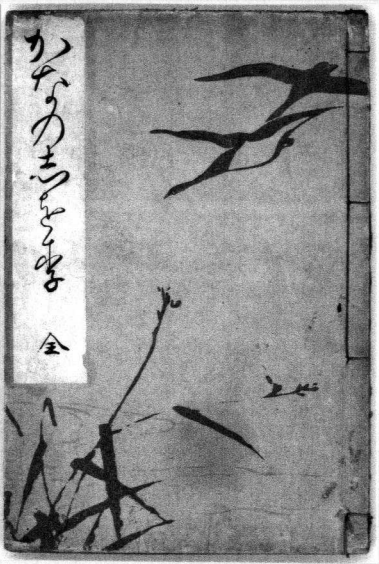 かなの志を李 全